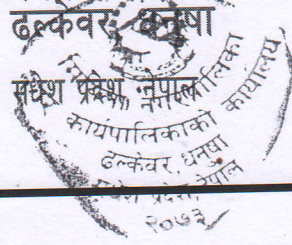 ढल्केवर, धनुषा
मधेश प्रदेश, नेपाल
नगरपालिका
कार्यपालिकाको कार्यालय
ढल्केवर, धनुषा
प्रदेश, नेपाल
२०७३